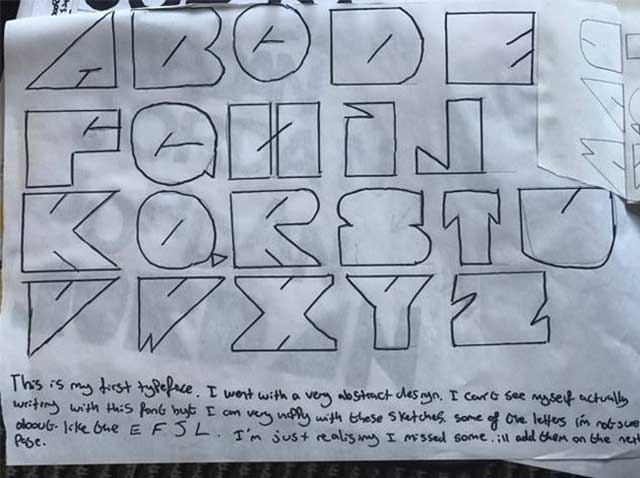 A B C D E
F G H I J
K Q R S T U
V W X Y Z
This is my first typeface. I went with a very abstract design. I can't see myself actually
writing with this font but I am very happy with these sketches. some of the letters i'm not sure
about. like the E F J L. I'm just realising I missed some. ill add them on the next
Page.